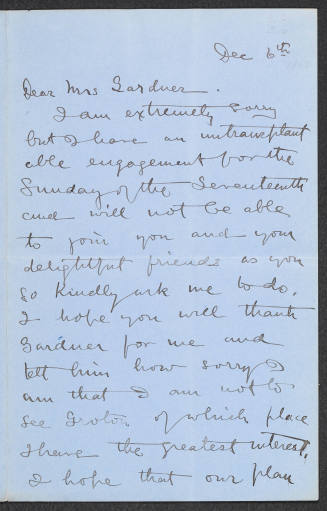 Dec 6th
Dear Mrs Gardner.
I am extremely sorry
but I have an untransplant
able engagement for the
Sunday of the Seventeenth
and will not be able
to join you and your
delightful friends as you
so kindly ask me to do.
I hope you will thank
Gardner for me and
tell him how sorry I
am that I am not to
see Groton of which place
I have the greatest interest.
I hope that our plan